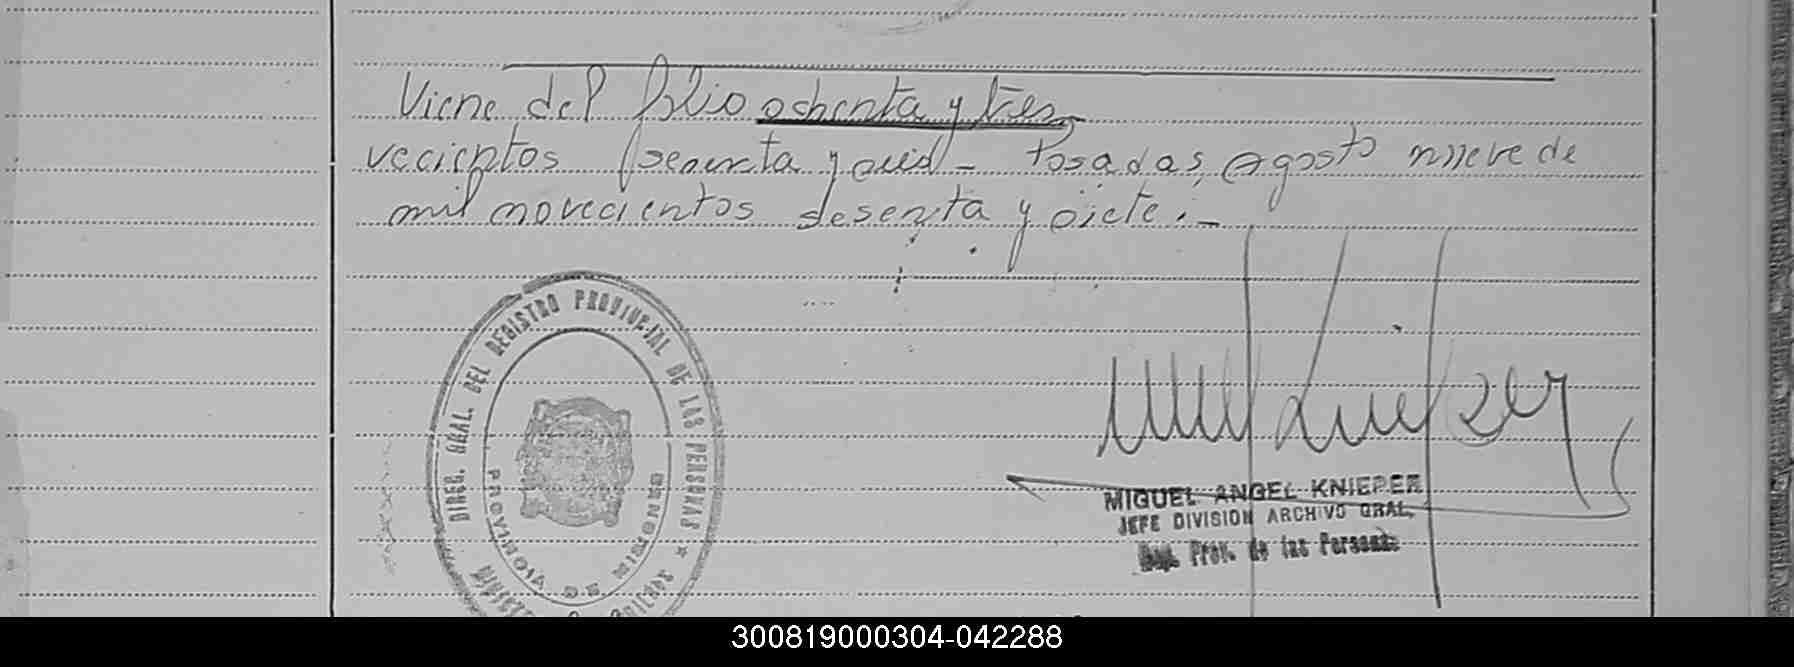 Viene del folio ochenta y tres
vecientos sesenta y seis - Posadas, agosto nueve de
mil novecientos sesenta y siete. -
DIREC. GRAL. DEL REGISTRO PROVINCIAL DE LAS PERSONAS ★
PROVINCIA DE MISIONES
MIGUEL ANGEL KNIEPER
JEFE DIVISION ARCHIVO GRAL.
Prov. de las Personas
300819000304-042288